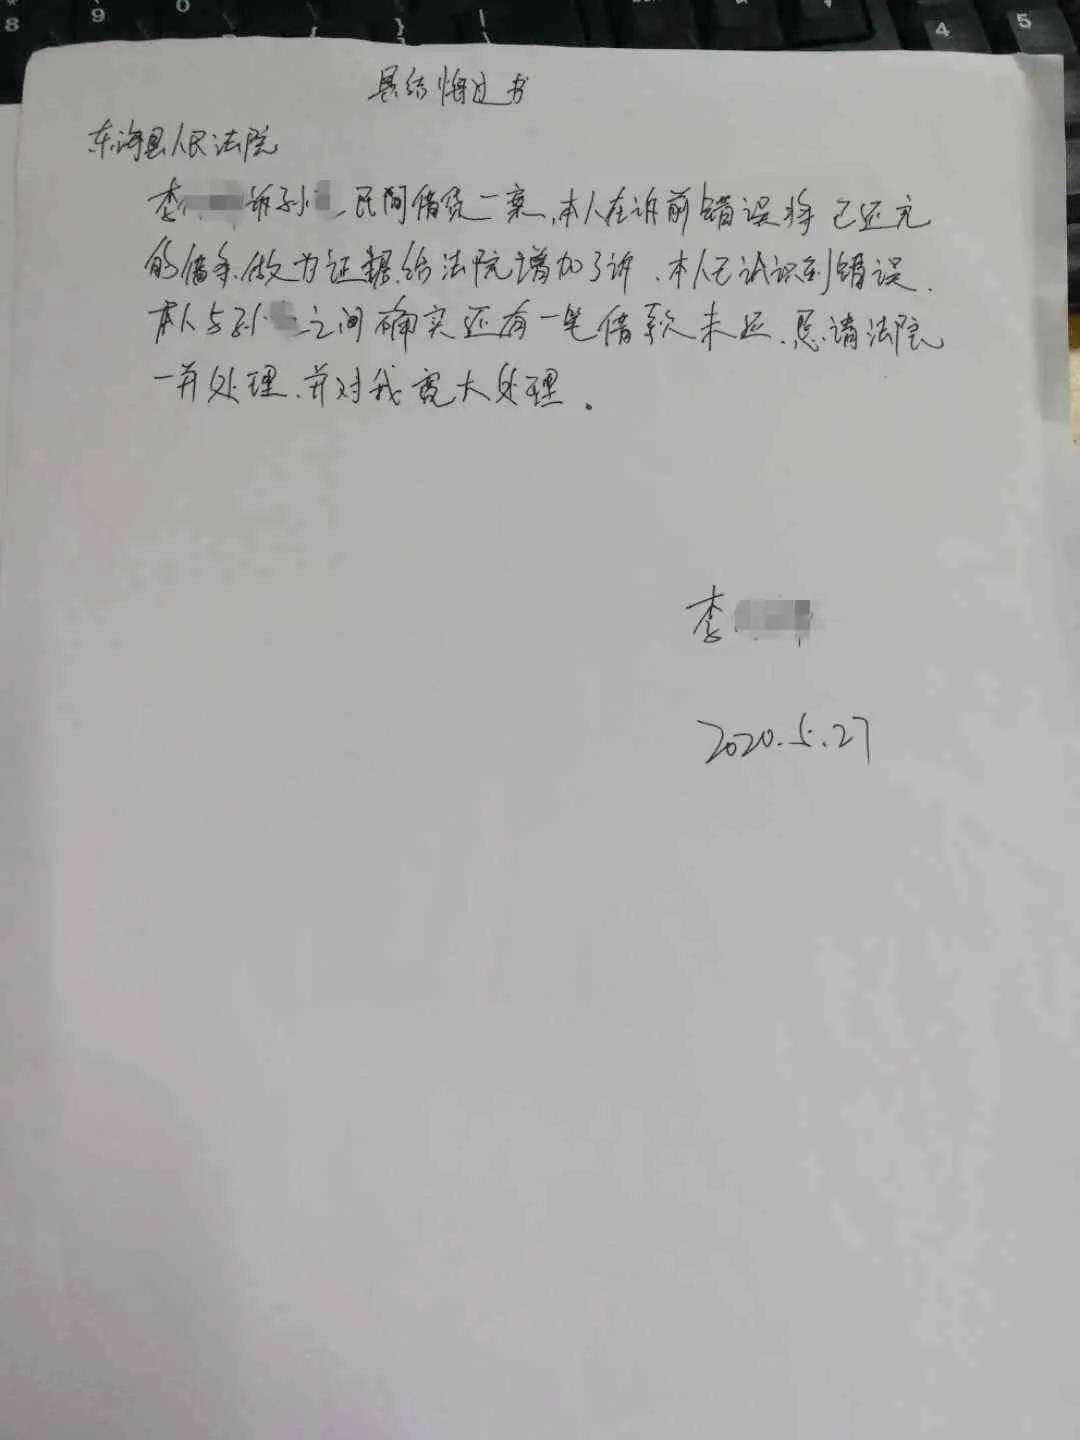 8
9
0
{
}
|
4
5
具结悔过书
东海县人民法院
李 诉孙 民间借贷一案,本人在诉前错误将已还完
的借条、做为证据给法院增加了诉、本人已认识到错误.
本人与孙 之间确实还有一笔借款未还、恳请法院
一并处理、并对我宽大处理。
李
2020.5.27